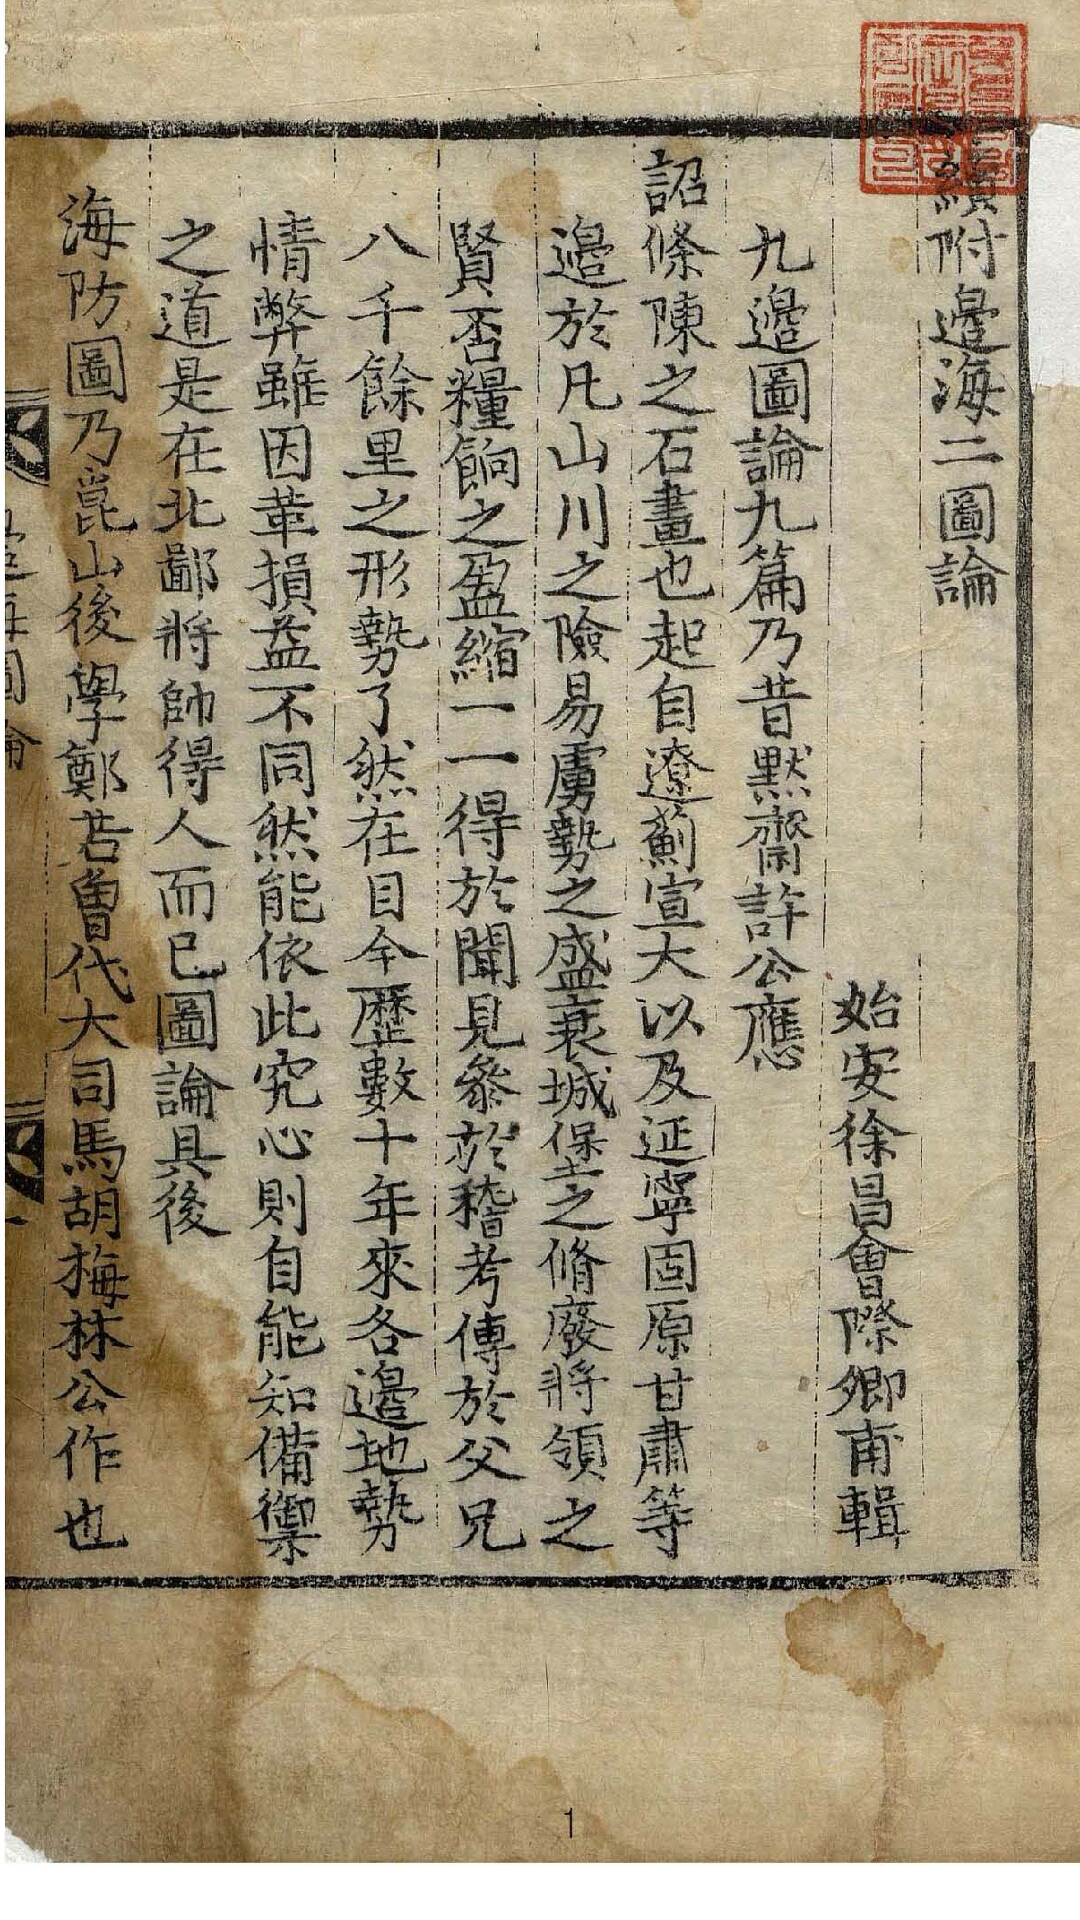 續附邊海二圖論
始安徐昌會際卿甫輯
九邊圖論九篇乃昔默齋許公應
詔條陳之石畫也起自遼薊宣大以及延寧固原甘肅等
邊於凡山川之險易虜勢之盛衰城堡之脩廢將領之
賢否糧餉之盈縮一一得於聞見叅於稽考傳於父兄
八千餘里之形勢了然在目今歷數十年來各邊地勢
情弊雖因革損益不同然能依此究心則自能知備禦
之道是在北鄙將帥得人而已圖論具後
海防圖乃崑山後學鄭若曾代大司馬胡梅林公作也
邊海圖論
1